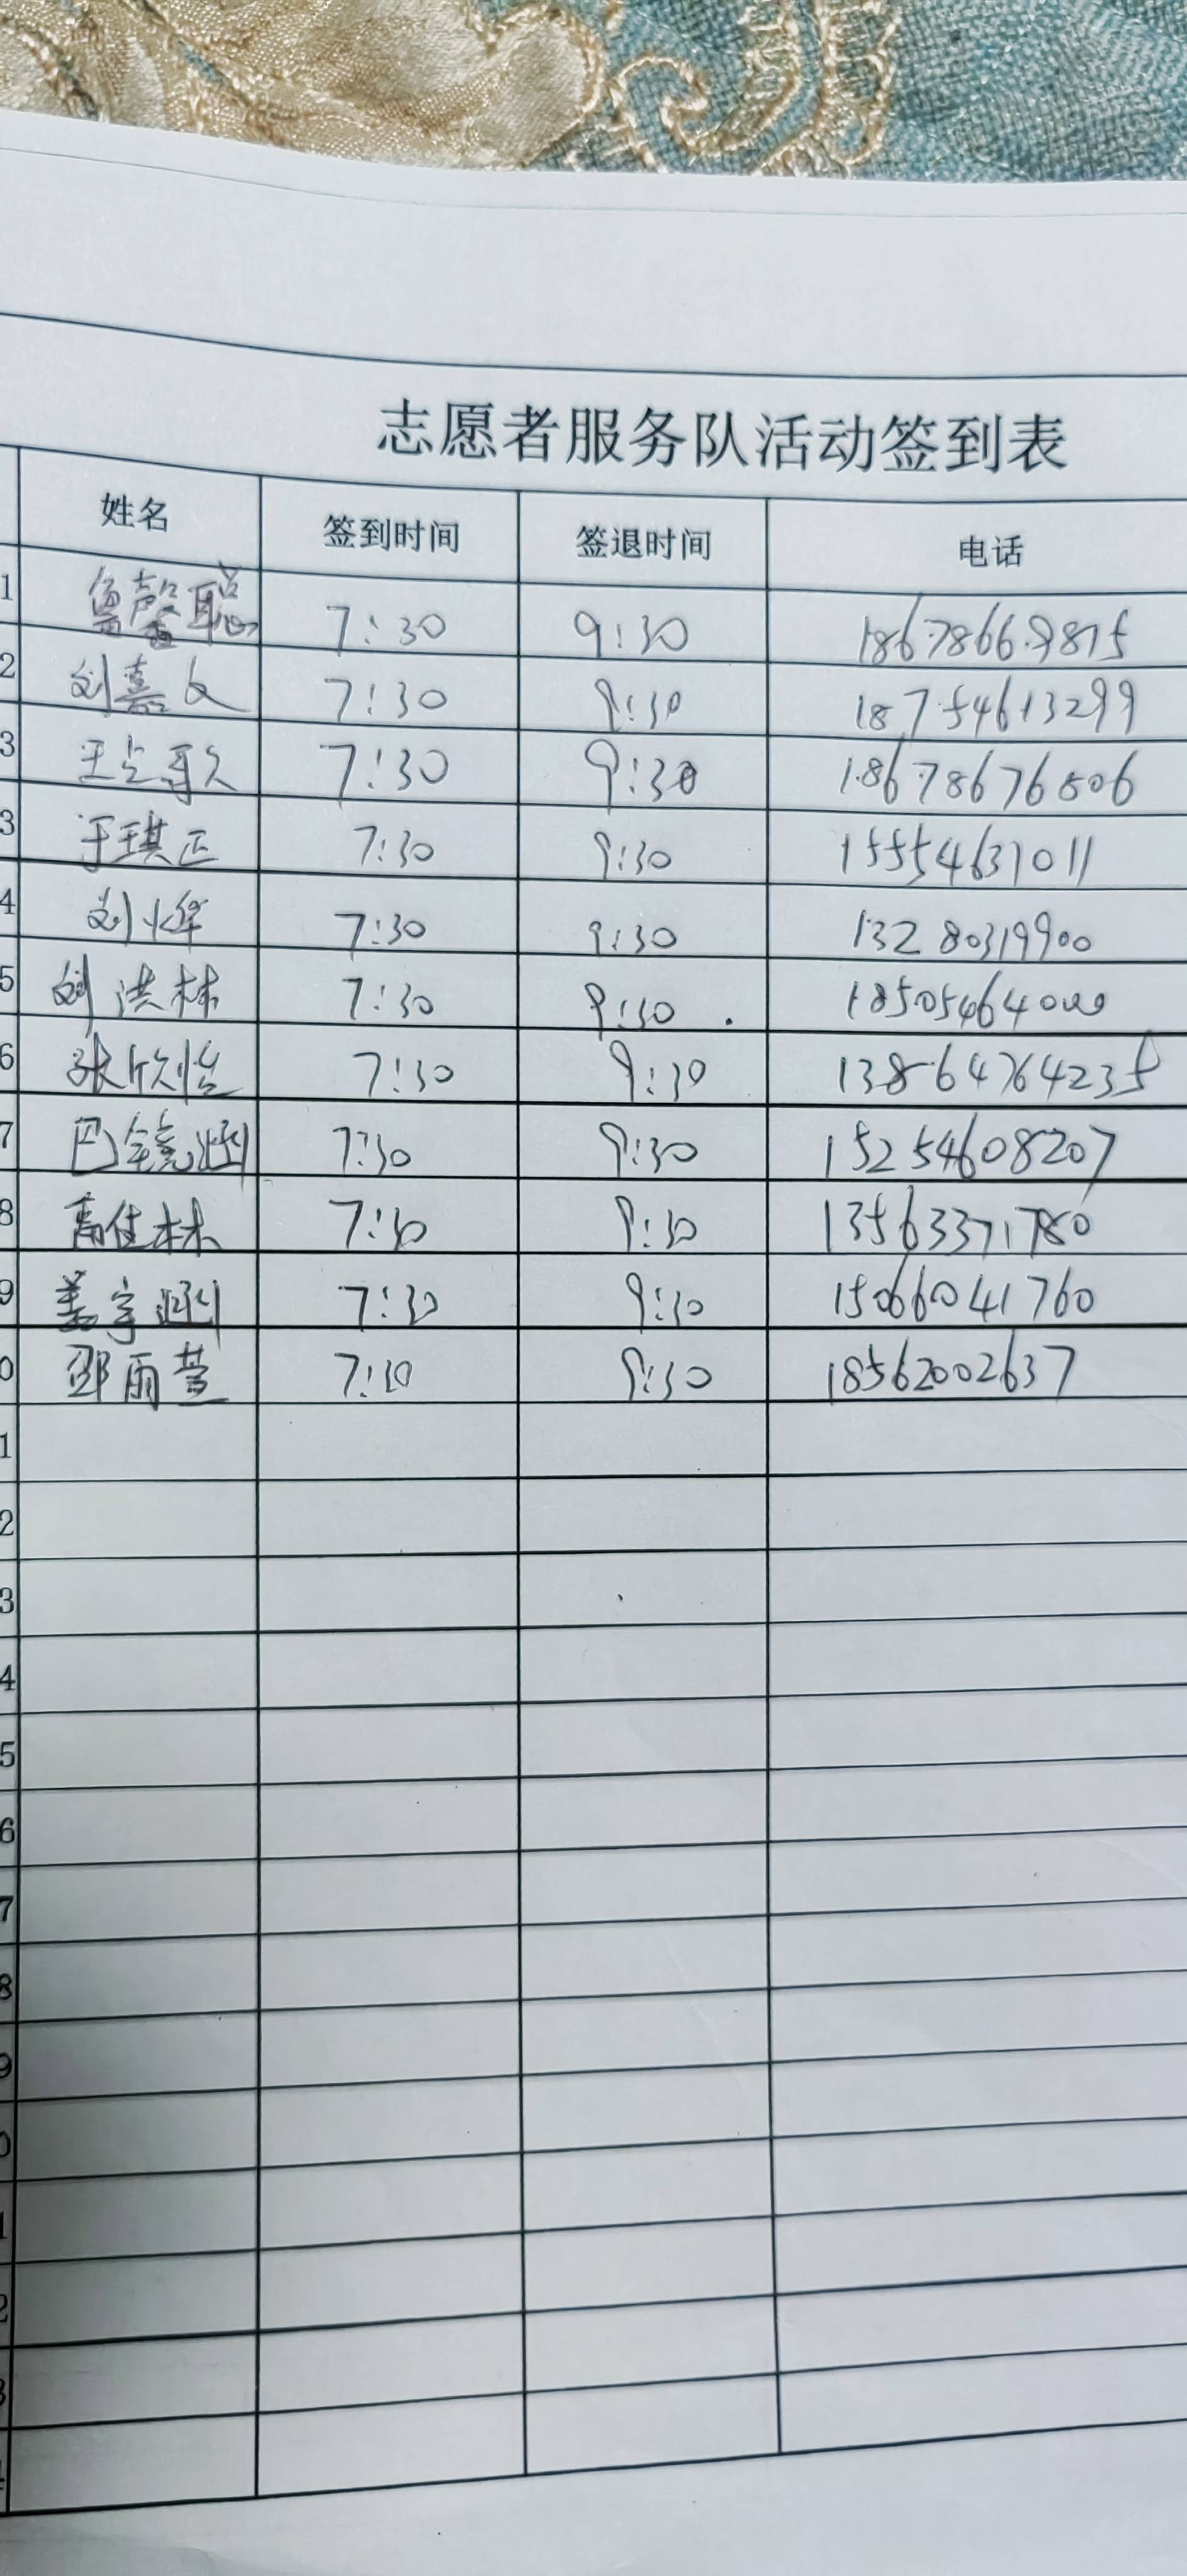 志愿者服务队活动签到表
姓名 签到时间 签退时间 电话
1 鲁馨聪 7:30 9:30 18678669875
2 刘嘉 7:30 9:30 18754613299
3 王 7:30 9:30 18678676806
3 于琪正 7:30 9:30 15554631011
4 刘烨 7:30 9:30 13280319900
5 刘洪林 7:30 9:30 18505464000
6 张欣怡 7:30 9:30 13864764235
7 巴镜涵 7:30 9:30 15254608207
8 高佳林 7:30 9:30 13563371780
9 盖宇涵 7:30 9:30 15066041760
0 邵雨萱 7:30 9:30 18562002637
1
2
3
4
5
6
7
8
9
0
1
2
3